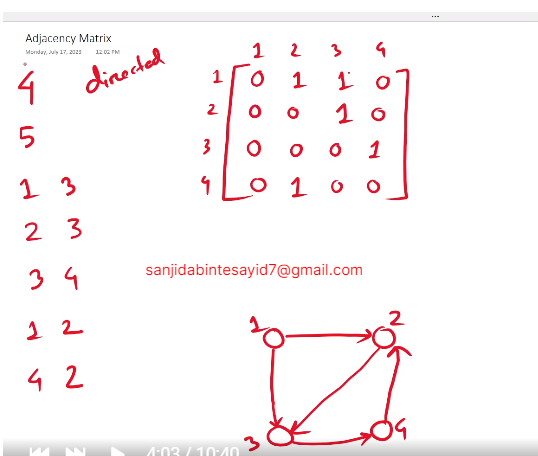 Adjacency Matrix
Monday, July 17, 2023 12:02 PM
4 directed
5
1 3
2 3
3 4
1 2
4 2
1 2 3 4
1 0 1 1 0
2 0 0 1 0
3 0 0 0 1
4 0 1 0 0
sanjidabintesayid7@gmail.com
1 2
3 4
4:03 / 10:40